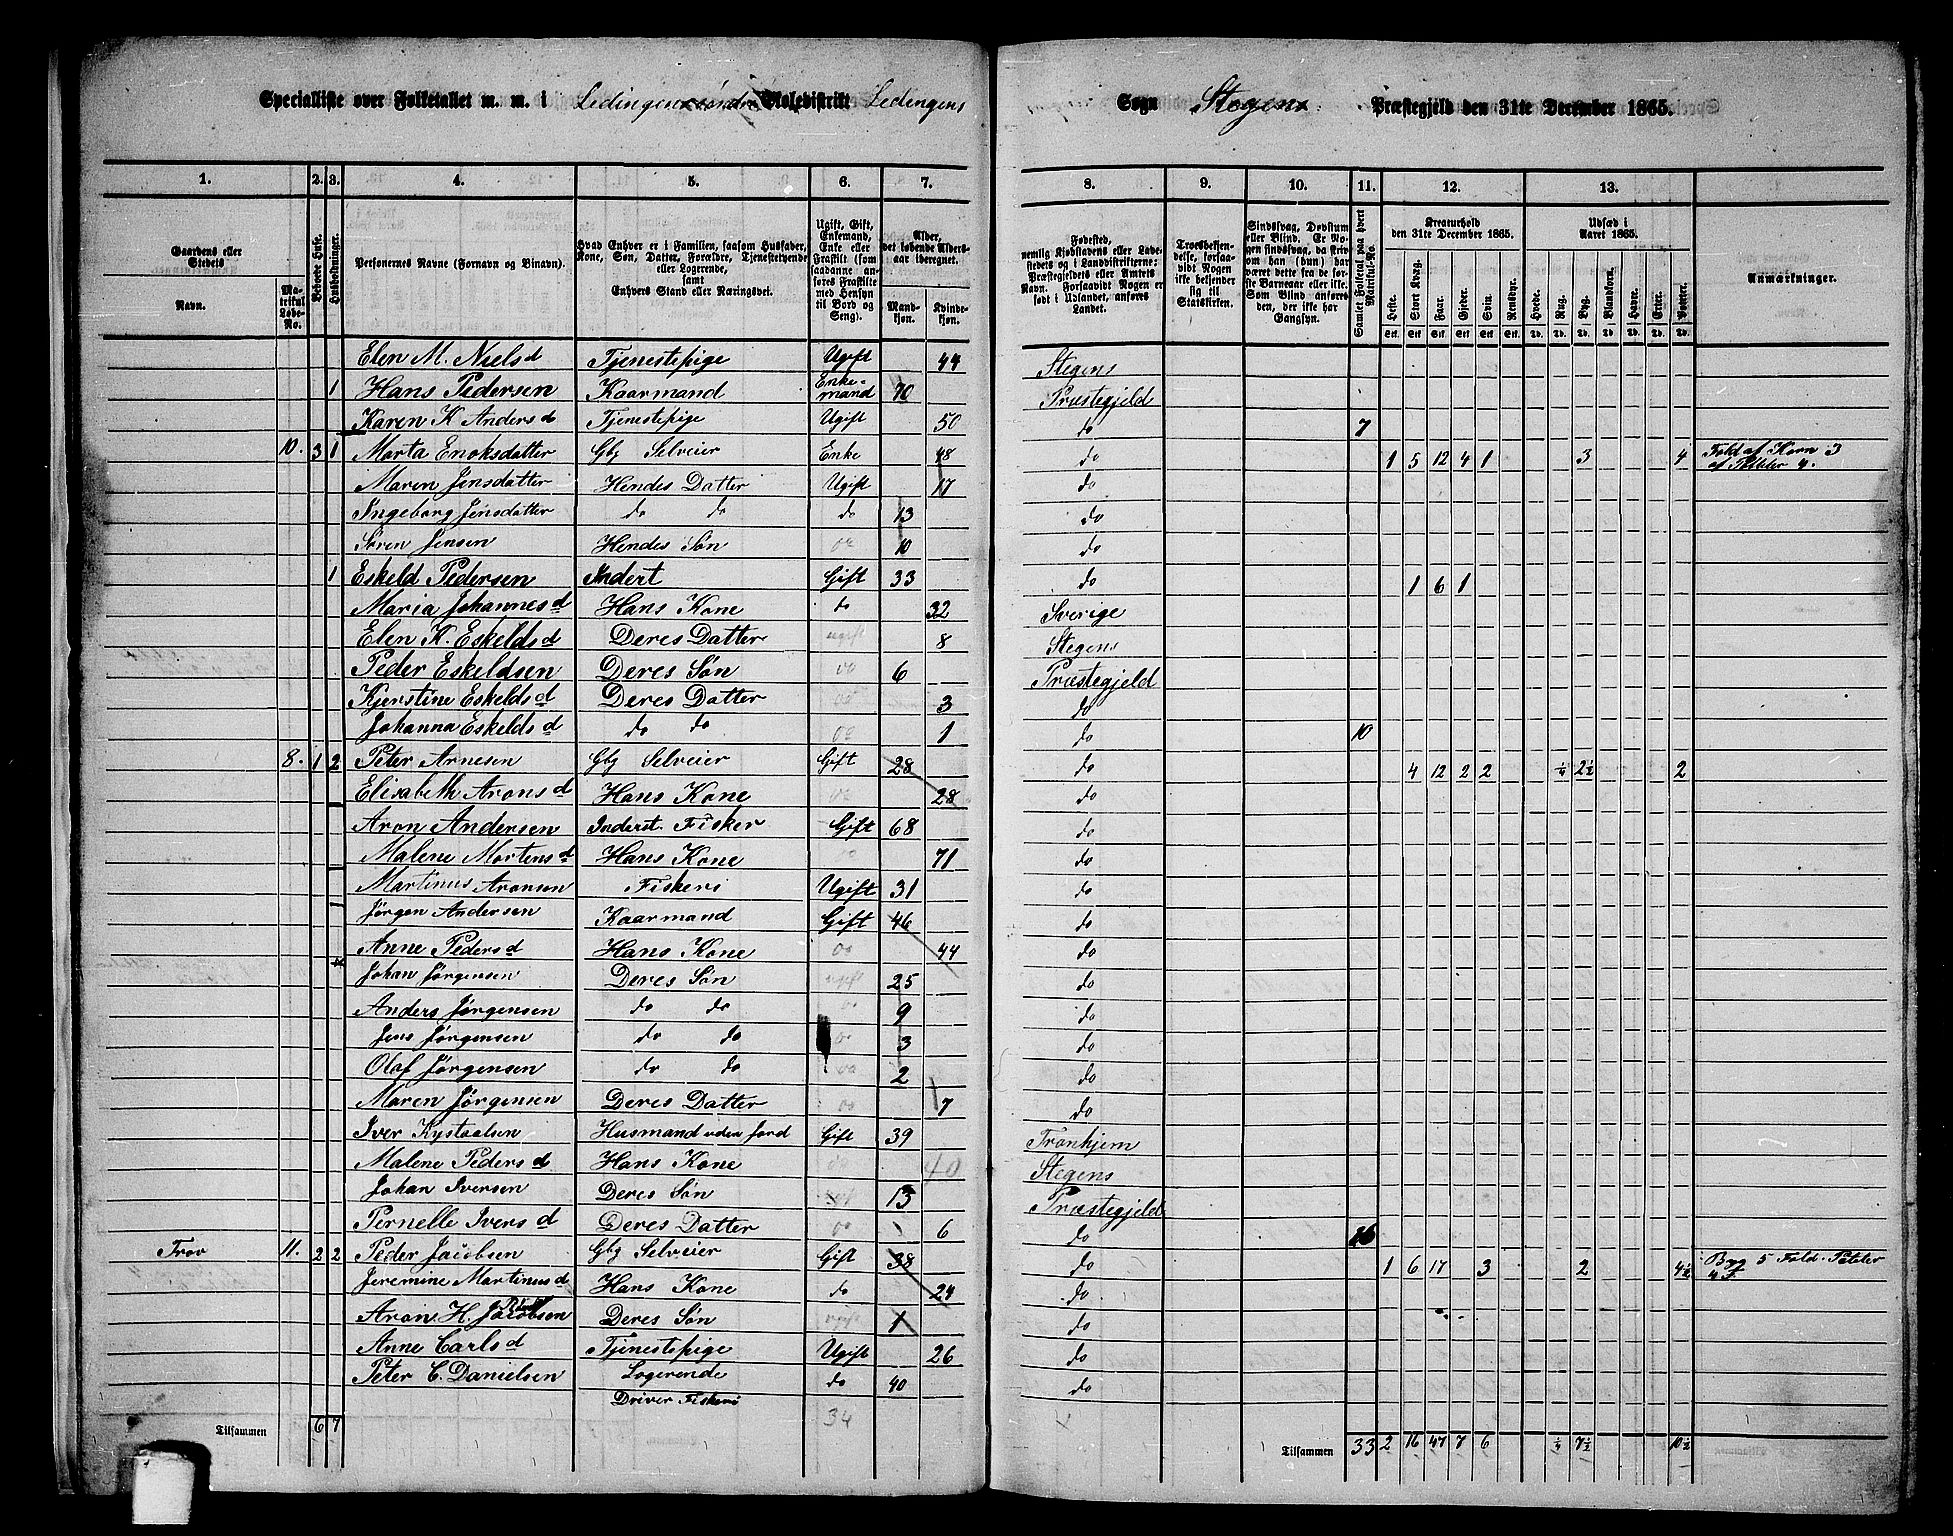 Specialliste over Folketallet m. m. i Ledingens søndre Skoledistrikt Ledingens Sogn Stegens Præstegjeld den 31te December 1865.
1. 2. 3. 4. 5. 6. 7. 8. 9. 10. 11. 12. 13.
Gaardens eller Stedets
Navn.
Matrikul Løbe-No.
Beboede Huse.
Husholdninger.
Personernes Navne (Fornavn og Binavn).
Hvad Enhver er i Familien, saasom Husfader, Kone, Søn, Datter, Forældre, Tjenestetyende eller Logerende,
samt
Enhvers Stand eller Næringsvei.
Ugift, Gift, Enkemand, Enke eller Fraskilt (som saadanne anføres Fraskilte med Hensyn til Bord og Seng).
Alder, det løbende Aldersaar iberegnet.
Mandkjøn. Kvindekjøn.
Fødested, nemlig Kjøbstadens eller Ladestedets og i Landdistrikterne: Præstegjeldets eller Amtets Navn. Forsaavidt Nogen er født i Udlandet, anføres Landet.
Troesbekjendelse, forsaavidt Nogen ikke bekjender sig til Statskirken.
Sindssvag, Døvstum eller Blind. Er Nogen sindssvag, da hvorom han (hun) har været dette fra de første Barneaar eller ikke. Som Blind anføres den, der ikke har Gangsyn.
Samlet Folketal paa hvert Matrikul-No.
Kreaturhold den 31te December 1865.
Heste. Stort Kvæg. Faar. Gjeder. Sviin. Rensdyr.
Udsæd i Aaret 1865.
Hvede. Rug. Byg. Blandkorn. Havre. Erter. Poteter.
Anmærkninger.
Elen M. Niels d Tjenestepige Ugift 44 Stegens
1 Hans Pedersen Kaarmand Enkemand 70 Præstegjeld
Karen K Anders d Tjenestepige Ugift 50 do 7
10. 3 1 Marta Enoksdatter Gbg Selveier Enke 48 do 1 5 12 4 1 3 4 Fold af Korn 3 af Poteter 4.
Maren Jensdatter Hendes Datter Ugift 17 do
Ingeborg Jensdatter do do do 13 do
Søren Jensen Hendes Søn do 10 do
1 Eskeld Pedersen Inderst Gift 33 do 1 6 1
Maria Johannes d Hans Kone do 32 Sverige
Elen K. Eskelds d Deres Datter ugift 8 Stegens
Peder Eskeldsen Deres Søn do 6 Præstegjeld
Kjerstine Eskelds d Deres Datter do 3 do
Johanna Eskelds d do do do 1 do 10
8. 1 2 Peter Arnesen Gbg Selveier Gift 28 do 4 12 2 2 1/4 2 1/2 2
Elisabeth Arons d Hans Kone do 28 do
Aron Andersen Inderst. Fisker Gift 68 do
Malene Mortens d Hans Kone do 71 do
Martinus Aronsen Fiskeri Ugift 31 do
Jørgen Andersen Kaarmand Gift 46 do
Anne Peders d Hans Kone do 44 do
Johan Jørgensen Deres Søn ugift 25 do
Anders Jørgensen do do do 9 do
Jens Jørgensen do do do 3 do
Olaf Jørgensen do do do 2 do
Maren Jørgensen Deres Datter do 7 do
Iver Kystaalsen Husmand uden Jord Gift 39 Tronhjem
Malene Peders d Hans Kone do 40 Stegens
Johan Iversen Deres Søn 13 Præstegjeld
Pernelle Ivers d Deres Datter do 6 do 16
Trov 11. 2 2 Peder Jacobsen Gbg Selveier Gift 38 do 1 6 17 3 2 4 1/2 Byg 5 Fold. Poteter 4 F
Jeremine Martinus d Hans Kone do 24 do
Aron H. Jacobsen Deres Søn ugift 1 do
Anne Carls d Tjenestepige Ugift 26 do
Peter C. Danielsen Logerende do 40 do
Driver Fiskeri
Tilsammen 6 7 34 Tilsammen 33 2 16 47 7 6 1/4 7 1/2 10 1/2